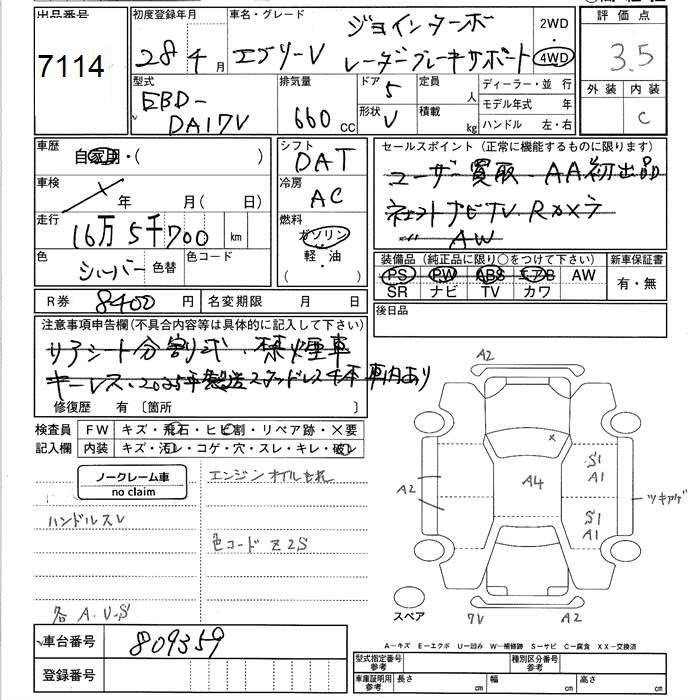 出品番号
7114
初度登録年月
28年4月
車名・グレード
ジョインターボ
エブリーV レーダーブレーキサポート
2WD
4WD
評価点
3.5
外装 内装
C
型式
EBD-
DA17V
排気量
660 CC
ドア
5
形状
V
定員
人
積載
kg
ディーラー・並行
モデル年式 年
ハンドル 左・右
車歴
自家用・( )
車検
年 月(日)
走行
16万5千700 km
色
シルバー
色替
色コード
シフト
DAT
冷房
AC
燃料
ガソリン
軽油
( )
R券 8400円
名変期限 月 日
セールスポイント(正常に機能するものに限ります)
ユーザー買取 AA初出品
ナビTV Rカメラ
AW
装備品(純正品に限り○をつけて下さい)
PS PW ABS エアB AW
SR ナビ TV カワ
新車保証書
有・無
後日品
注意事項申告欄(不具合内容等は具体的に記入して下さい)
リアシート分割式・禁煙車
キーレス・2025年製造スタッドレス4本車内あり
修復歴 有〔箇所 〕
検査員
記入欄
FW キズ・飛石・ヒビ割・リペア跡・×要
内装 キズ・汚レ・コゲ・穴・スレ・キレ・破レ
ノークレーム車
no claim
エンジンオイルもれ
ハンドルスレ
色コード Z2S
各 A.U.S
車台番号 809359
登録番号
A2
×
A4
A2
S1
A1
S1
A1
ツキアゲ
スペア
7V
A2
A-キズ E-エクボ U-凹み W-補修跡 S-サビ C-腐食 XX-交換済
型式指定番号
参考
種別区分番号
参考
車庫証明用
参考
長さ cm
幅 cm
高さ cm